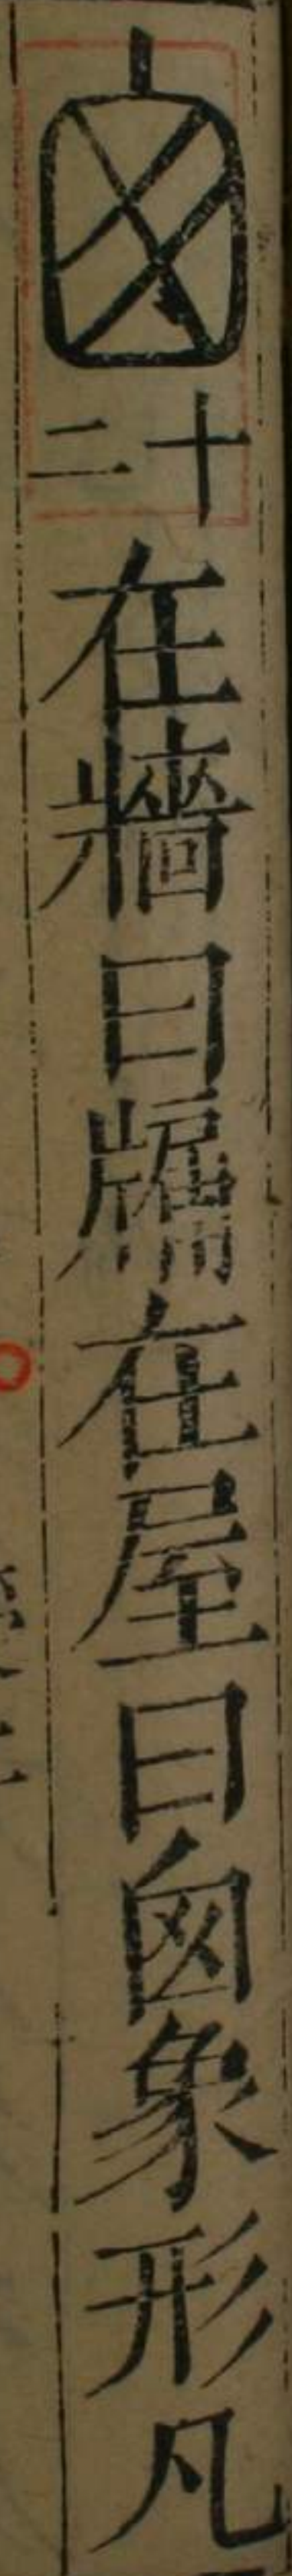 囪十二在牆曰牖在屋曰囪象形凡